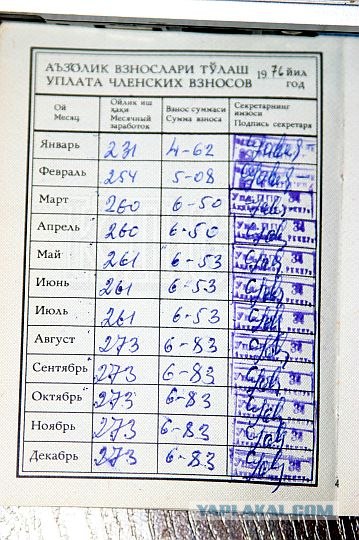 АЪЗОЛИК ВЗНОСЛАРИ ТЎЛАШ 1976 ЙИЛ
УПЛАТА ЧЛЕНСКИХ ВЗНОСОВ ГОД
Ой Месяц
Ойлик иш ҳақи Месячный заработок
Взнос суммаси Сумма взноса
Секретарнинг имзоси Подпись секретаря
Январь 231 4-62
Февраль 254 5-08
Март 260 6-50
Апрель 260 6-50
Май 261 6-53
Июнь 261 6-53
Июль 261 6-53
Август 273 6-83
Сентябрь 273 6-83
Октябрь 273 6-83
Ноябрь 273 6-83
Декабрь 273 6-83
4
YAPLAKAL.COM